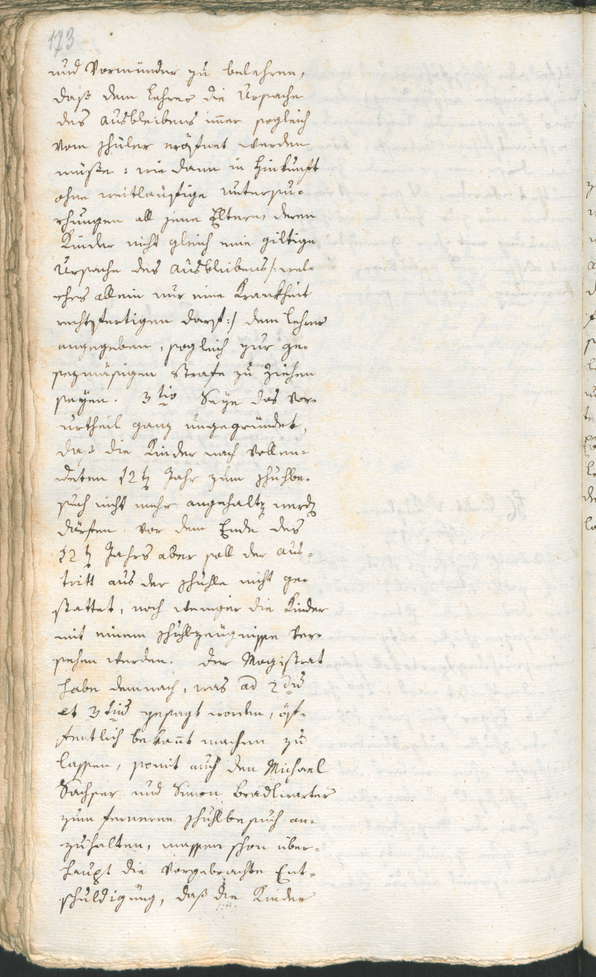 173
und Vormünder zu belehren,
daß dem Lehrer die Ursache
des Ausbleibens immer sogleich
vom Schüler eröfnet werden
müße: wie dann in Hinkunft
ohne weitläufige Untersu-
chungen all jene Eltern, deren
Kinder nicht gleich eine giltige
Ursache des Ausbleibens /: wel-
ches allein nur eine Krankheit
rechtfertigen darf :/ dem Lehrer
angegeben, sogleich zur ge-
sezmäsigen Strafe zu ziehen
seyen. 3tio Seye das Vor-
urtheil ganz ungegründet,
daß die Kinder nach vollen-
deten 12tn Jahr zum Schulbe-
such nicht mehr angehaltn werdn
dürfen. Vor dem Ende des
12tn Jahrs aber soll der Aus-
tritt aus der Schulle nicht ge-
stattet, noch weniger die Kinder
mit einem Schulzeugnisse ver-
sehen werden. Der Magistrat
habe demnach, was ad 2dum
et 3tium gesagt worden, öf-
fentlich bekannt machen zu
lassen, somit auch den Michael
Sachser und Simon Bradlwarter
zum ferneren Schulbesuch an-
zuhalten, massen schon über-
haupt die vorgebrachte Ent-
schuldigung, daß die Kinder